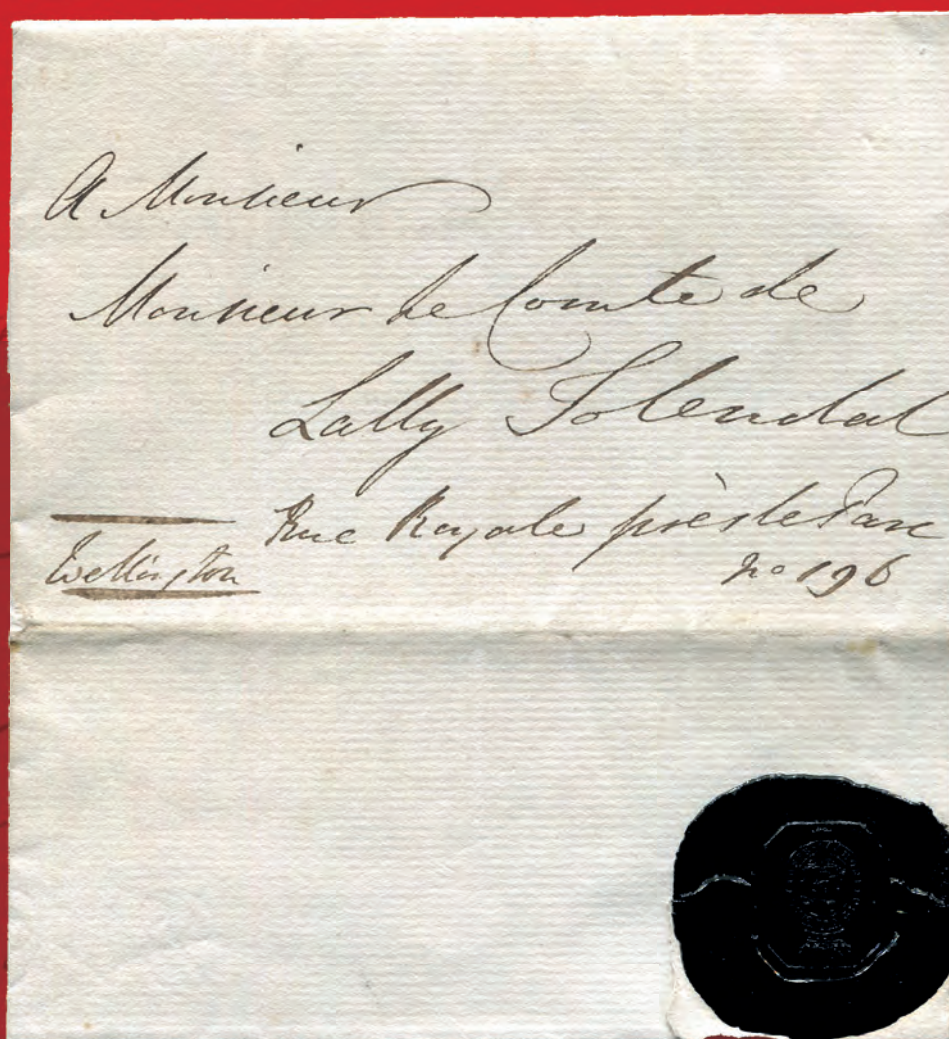 A Monsieur
Monsieur le Comte de
Lally Tolendal
Rue Royale près le Parc
no 196
Wellington